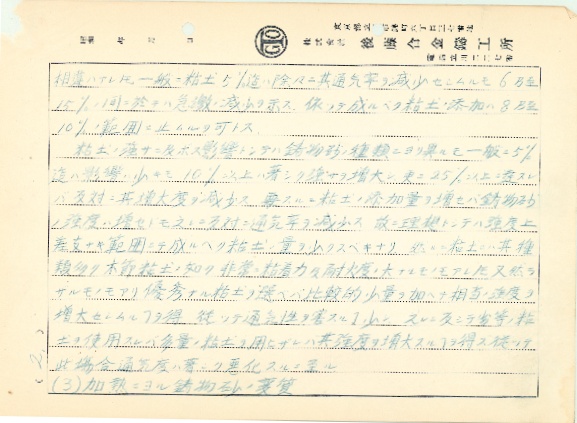 昭和 年 月 日
GTO
株式会社 後藤合金鋳工所
相違ハアレ圧一般ニ粘土5%迄ハ除々ニ其通気率ヲ減少セシムルモ6乃至
15%ノ間ニ於テハ急激ノ減少ヲ示ス 依ッテ成ルベク粘土ノ添加ハ8乃至
10%ノ範囲ニ止ムルヲ可トス
粘土ノ強サニ及ホス影響トシテハ鋳物砂ノ種類ニヨリ異ルモ一般ニ5%
迄ハ影響ハ少キモ10%以上ハ著シク強サヲ増大シ更ニ25%以上ニ
反対ニ其増大度ヲ減少ス 要スルニ粘土ノ添加量ヲ増セバ鋳物砂
ノ強度ハ増セ 反対ニ通気率ヲ減少ス 故ニ理想トシテハ強度上
差支ナキ範囲ニテ成ルヘク粘土ノ量ヲ少クスベキナリ 粘土ニハ其種
粘土ノ如ク非常ニ粘着力及耐火度ノ大ナルモノモアレ圧又然ラ
サルモノモアリ優秀ナル粘土ヲ選ヘバ比較的少量ヲ加ヘテ相当ノ強度ヲ
増大セシムルヲ得 従ッテ通気性ヲ害スル少シ 劣等ノ粘
土ヲ使用スレバ多量ノ粘土ヲ用ヒザレハ其強度ヲ増大スルヲ得ス従ッテ
此場合通気度ハ著シク悪化スルニ至ル
(3)加熱ニヨル鋳物砂ノ変質
(2)